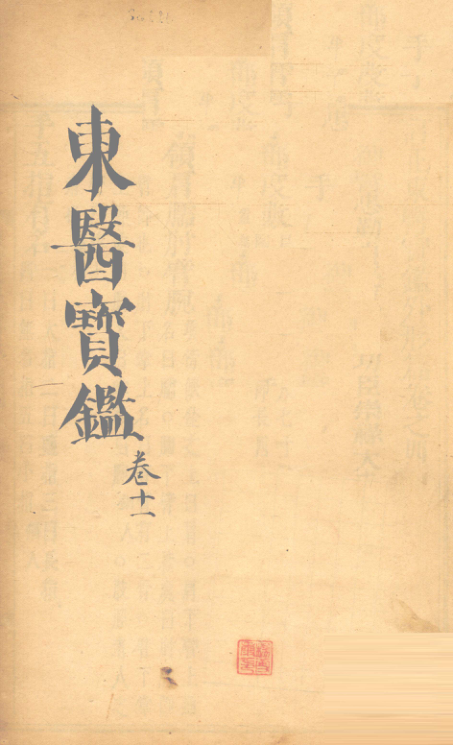 東醫寶鑑
卷十一